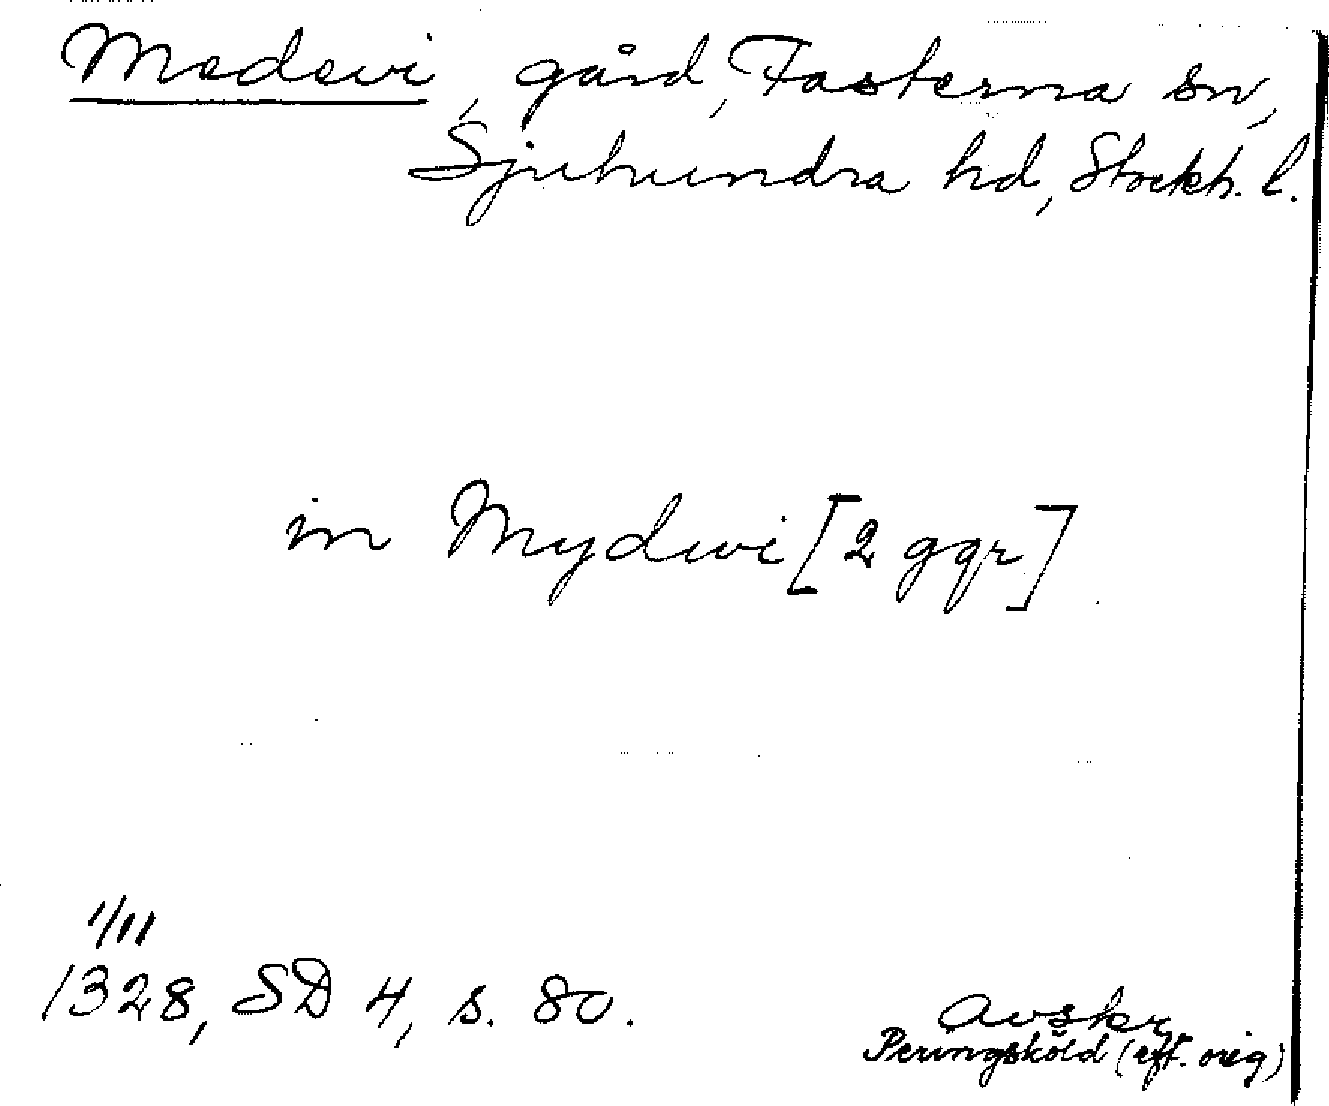 Medevi, gård, Fasterna sn,
Sjuhundra hd, Stockh. l.
in Mydwi [2 ggr]
1/11
1328, SD 4, s. 80.
Avskr.
Peringsköld (eft. orig)